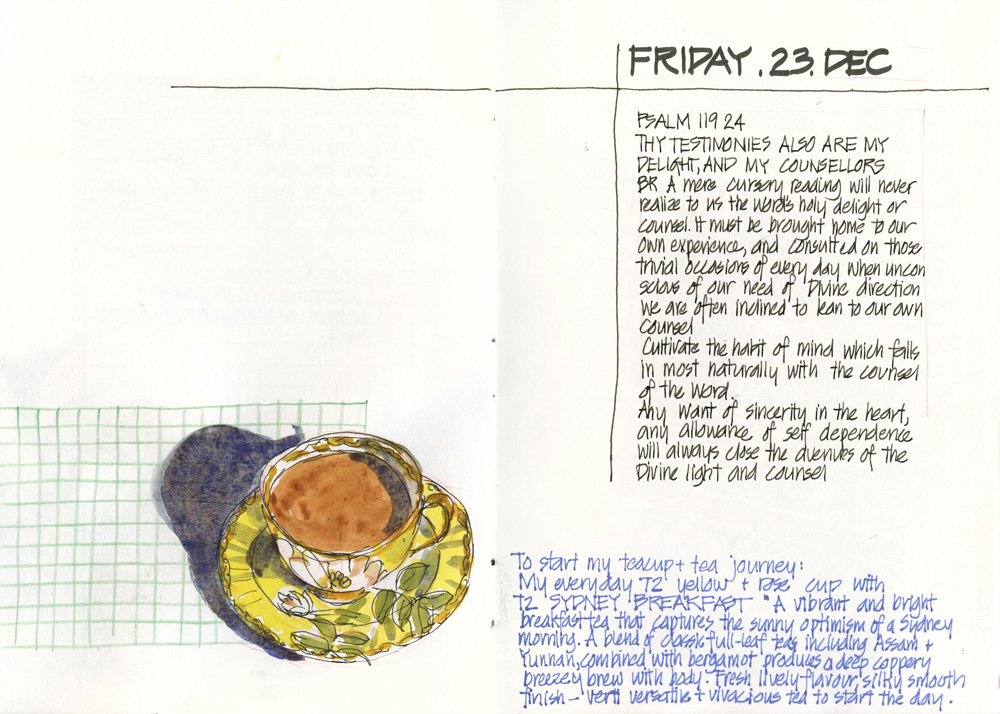 FRIDAY. 23. DEC
PSALM 119 24
THY TESTIMONIES ALSO ARE MY
DELIGHT, AND MY COUNSELLORS
BR A mere cursory reading will never
realize to us the word's holy delight or
counsel. It must be brought home to our
own experience, and consulted on those
trivial occasions of every day when uncon
scious of our need of Divine direction
we are often inclined to lean to our own
counsel
Cultivate the habit of mind which falls
in most naturally with the counsel
of the Word.
Any want of sincerity in the heart,
any allowance of self dependence
will always close the avenues of the
Divine light and counsel
To start my teacup + tea journey:
My everyday T2 yellow + rose cup with
T2 SYDNEY BREAKFAST "A vibrant and bright
breakfast tea that captures the sunny optimism of a Sydney
morning. A blend of classic full-leaf teas including Assam +
Yunnan, combined with bergamot produces a deep coppery
breezy brew with body. Fresh lively flavour, silky smooth
finish - very versatile + vivacious tea to start the day.